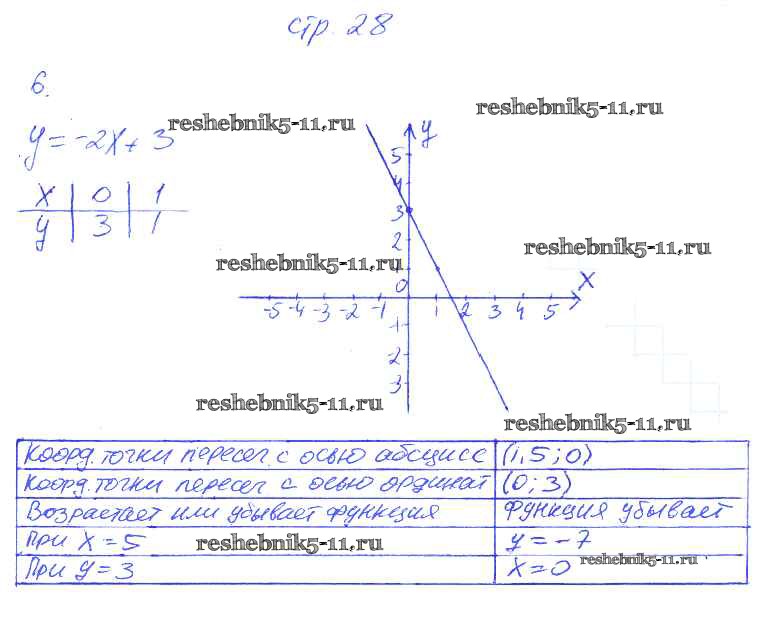 стр. 28
6.
reshebnik5-11.ru
reshebnik5-11.ru
y = -2x + 3
y
x 0 1
y 3 1
5
4
3
2
reshebnik5-11.ru
reshebnik5-11.ru
0
x
-5 -4 -3 -2 -1 1 2 3 4 5
-1
-2
-3
reshebnik5-11.ru
reshebnik5-11.ru
Коорд. точки пересеч с осью абсцисс (1,5; 0)
Коорд. точки пересеч с осью ординат (0; 3)
Возрастает или убывает функция функция убывает
При x = 5 reshebnik5-11.ru y = -7
При y = 3 x = 0 reshebnik5-11.ru